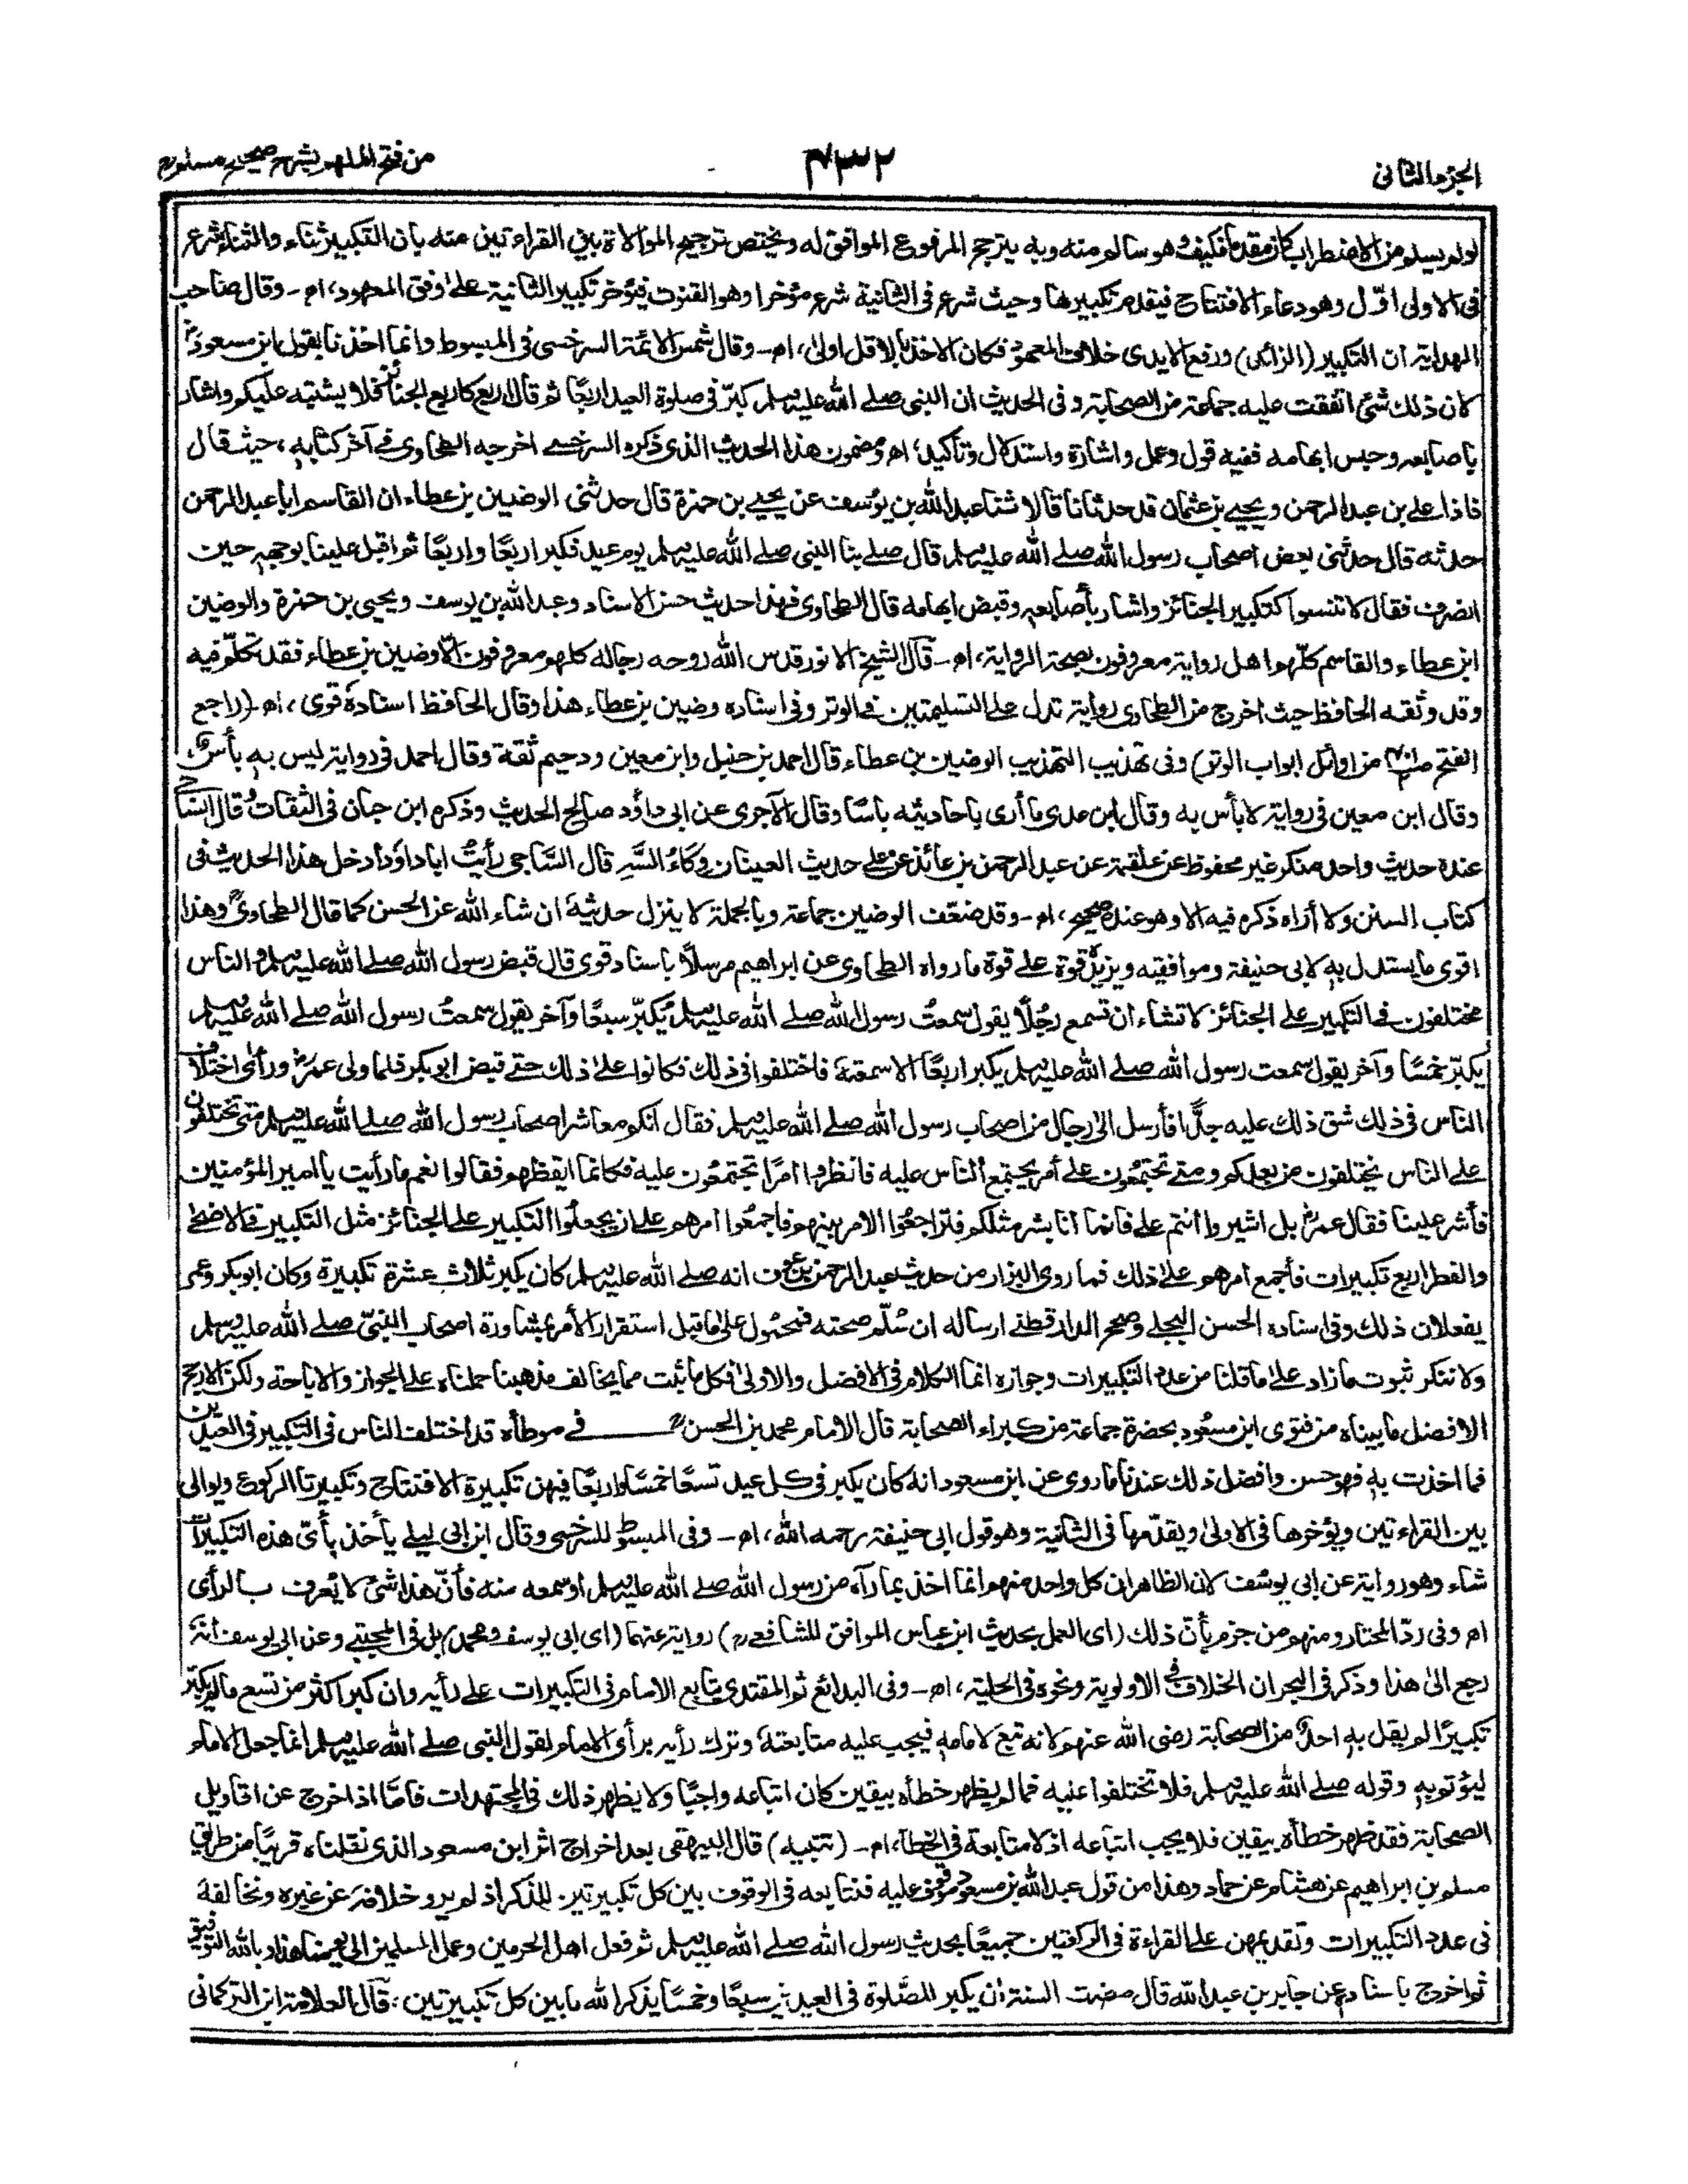 الجزء الثانى
٤٣٢
من فتح الملهم بشرح صحيح مسلم
لو لم يسلم من الاضطراب كان مقدما فكيف وهو سالم منه وبه يترجح المرفوع الموافق له ويختص ترجيح الموالاة بين القراءتين منه بان التكبير ثناء والثناء شرع
فى الاولى اوّل وهو دعاء الافتتاح فيقدم تكبيرها وحيث شرع فى الثانية شرع مؤخرا وهو القنوت فيؤخر تكبير الثانية على وفق المعهود، اھ۔ وقال صاحب
الهداية ان التكبير (الزائد) ورفع الايدى خلاف المعهود فكان الاخذ بالاقل اولىٰ، اھ۔ وقال شمس الائمة السرخسى فى المبسوط وانما اخذنا بقول ابن مسعودؓ
كان ذلك شئ اتفقت عليه جماعة من الصحابة وفى الحديث ان النبى صلے الله عليہ وسلم كبّر فى صلوة العيد اربعًا ثم قال اربع كاربع الجنائز فلا يشتبه عليكم واشار
باصابعه وحبس ابهامه ففيه قول وعمل واشارة واستدلال وتأكيد، اھ ومضمون هذا الحديث الذى ذكره السرخسے اخرجه الطحاوى فے آخر كتابهٖ، حيث قال
فاذا علے بن عبد الرحمن ويحيے بن عثمان قد حدثانا قالا ثنا عبد الله بن يوسف عن يحيے بن حمزة قال حدثنى الوضين بن عطاء ان القاسم ابا عبد الرحمن
حدثه قال حدثنى بعض اصحاب رسول الله صلے الله عليہ وسلم قال صلے بنا النبى صلے الله عليہ وسلم يوم عيد فكبر اربعًا واربعًا ثم اقبل علينا بوجههٖ حين
انصرف فقال لا تنسوا كتكبير الجنائز واشار بأصابعهٖ وقبض ابهامه قال الطحاوى فهذا حديث حسن الاسناد وعبد الله بن يوسف ويحيى بن حمزة والوضين
ابن عطاء والقاسم كلّهم اهل رواية معروفون بصحة الرواية، اھ۔ قال الشيخ الانور قدس الله روحه رجاله كلهم معروفون الّا وضين بن عطاء فقد تكلّم فيه
وقد وثقه الحافظ حيث اخرج من الطحاوى رواية تدل على التسليمتين فے الوتر وفى اسناده وضين بن عطاء هذا وقال الحافظ اسناده قوى، اھ۔ (راجع
الفتح من اوائل ابواب الوتر) وفى تهذيب التهذيب الوضين بن عطاء قال احمد بن حنبل وابن معين ودحيم ثقة وقال احمد فى رواية ليس بهٖ بأس
وقال ابن معين فى رواية لا بأس به وقال ابن عدى ما أرى باحاديثه باسًا وقال الآجرى عن ابى داؤد صالح الحديث وذكره ابن حبان فى الثقات قال الساجى
عنده حديث واحد منكر غير محفوظ عن علقمة عن عبد الرحمن بن عائذ عن على حديث العينان وكاء السَّهِ قال السَّاجى رأيتُ ابا داوٗد ادخل هذا الحديث فى
كتاب السنن ولا أراه ذكره فيه الا وهو عنده صحيح، اھ۔ وقد ضعّف الوضين جماعة وبالجملة لا ينزل حديثه ان شاء الله عن الحسن كما قال الطحاوىؒ وهذا
اقوى ما يستدل بهٖ لابى حنيفة وموافقيه ويزيده قوة على قوة ما رواه الطحاوى عن ابراهيم مرسلاً باسناد قوى قال قبض رسول الله صلے الله عليہ وسلم والناس
مختلفون فے التكبير على الجنائز لا تشاء ان تسمع رجُلاً يقول سمعتُ رسول الله صلے الله عليہ وسلم يُكبّر سبعًا وآخر يقول سمعتُ رسول الله صلے الله عليہ وسلم
يكبّر خمسًا وآخر يقول سمعت رسول الله صلے الله عليہ وسلم يكبر اربعًا الا سمعته فاختلفوا فى ذلك فكانوا علىٰ ذلك حتے قبض ابو بكر فلما ولى عمرؓ ورأى اختلاف
الناس فى ذلك شق ذلك عليه جدًّا فأرسل الى رجال من اصحاب رسول الله صلے الله عليہ وسلم فقال انكم معاشر اصحاب رسول الله صلے الله عليہ وسلم متى تختلفون
على الناس يختلفون من بعدكم ومتے تجتمعُون علے أمر يجتمع الناس عليه فانظروا امرًا تجتمعُون عليه فكانما ايقظهم فقالوا نعم ما رأيت يا امير المؤمنين
فأشر علينا فقال عمرؓ بل اشيروا أنتم على فانما أنا بشر مثلكم فتراجعُوا الامر بينهم فاجمعُوا امرهم على ان يجعلُوا التكبير على الجنائز مثل التكبير فے الاضحے
والفطر اربع تكبيرات فأجمع امرهم علىٰ ذلك فما روى البزار من حديث عبد الرحمن بن عوف انه صلے الله عليہ وسلم كان يكبر ثلاث عشرة تكبيرة وكان ابو بكر وعمر
يفعلان ذلك وفى اسناده الحسن البجلے وصحح الدارقطنے ارساله ان سُلّم صحته فمحمُول على ما قبل استقرار الأمر بمشاورة اصحاب النبىّ صلے الله عليہ وسلم
ولا ننكر ثبوت ما زاد علے ما قلنا من عدد التكبيرات وجوازه انما الكلام فى الافضل والاولىٰ فكل ما ثبت مما يخالف مذهبنا حملناه على الجواز والاباحة ولكن الارجح
الافضل ما بيناه من فتوى ابن مسعُود بحضرة جماعة من كبراء الصحابة قال الامام محمد بن الحسنؒ فے موطأه قد اختلف الناس فى التكبير فى العيدين
فما اخذت بهٖ فهو حسن وافضل ذلك عندنا ما روى عن ابن مسعود انه كان يكبر فى كل عيد تسعًا خمسًا واربعًا فيهن تكبيرة الافتتاح وتكبيرتا الركوع ويوالى
بين القراءتين ويؤخرها فى الاولىٰ ويقدّمها فى الثانية وهو قول ابى حنيفة رحمه الله، اھ۔ وفى المبسوط للسرخسى وقال ابن ابى ليلے يأخذ بأىّ هذه التكبيرات
شاء وهو رواية عن ابى يوسُف لان الظاهر ان كل واحد منهم انما اخذ بما رآه من رسول الله صلے الله عليہ وسلم او سمعه منه فأنّ هذا شئ لا يُعرف بالرأى
اھ وفى ردّ المحتار ومنهم من جزم بأنّ ذلك (اى العمل بحديث ابن عباس الموافق للشافعےؒ) رواية عنهما (اى ابى يوسف ومحمد) بل فى المجتبے وعن ابى يوسف انه
رجع الىٰ هذا وذكر فى البحر ان الخلاف فى الاولوية ونحوه فى الحلية، اھ۔ وفى البدائع ثم المقتدى يتابع الامام فى التكبيرات على رأيه وان كبر اكثر من تسع ما لم يكبّر
تكبيرًا لم يقل بهٖ احدٌ من الصحابة رضى الله عنهم لانه تبع لامامهٖ فيجب عليه متابعته وترك رأيه برأى الامام لقول النبى صلے الله عليہ وسلم انما جعل الامام
ليؤتم بهٖ وقوله صلے الله عليہ وسلم فلا تختلفوا عليه فما لم يظهر خطأه بيقين كان اتباعه واجبًا ولا يظهر ذلك فى المجتهدات فامّا اذا خرج عن اقاويل
الصحابة فقد ظهر خطأه بيقين فلا يجب اتباعه اذ لا متابعة فى الخطأ، اھ۔ (تنبيه) قال البيهقى بعد اخراج اثر ابن مسعود الذى نقلناه قريبًا من طريق
مسلم بن ابراهيم عن هشام عن حماد وهذا من قول عبد الله بن مسعود موقوف عليه فنتابعه فى الوقوف بين كل تكبيرتين للذكر اذ لم يرو خلافه عن غيره ونخالفه
فى عدد التكبيرات وتقديمهن على القراءة فى الركعتين جميعًا بحديث رسول الله صلے الله عليہ وسلم ثم فعل اهل الحرمين وعمل المسلمين الى يومنا هذا وبالله التوفيق
ثم اخرج باسناده عن جابر بن عبد الله قال مضت السنة ان يكبر للصَّلوة فى العيدين سبعًا وخمسًا يذكر الله ما بين كل تكبيرتين، قال العلامة ابن التركمانى